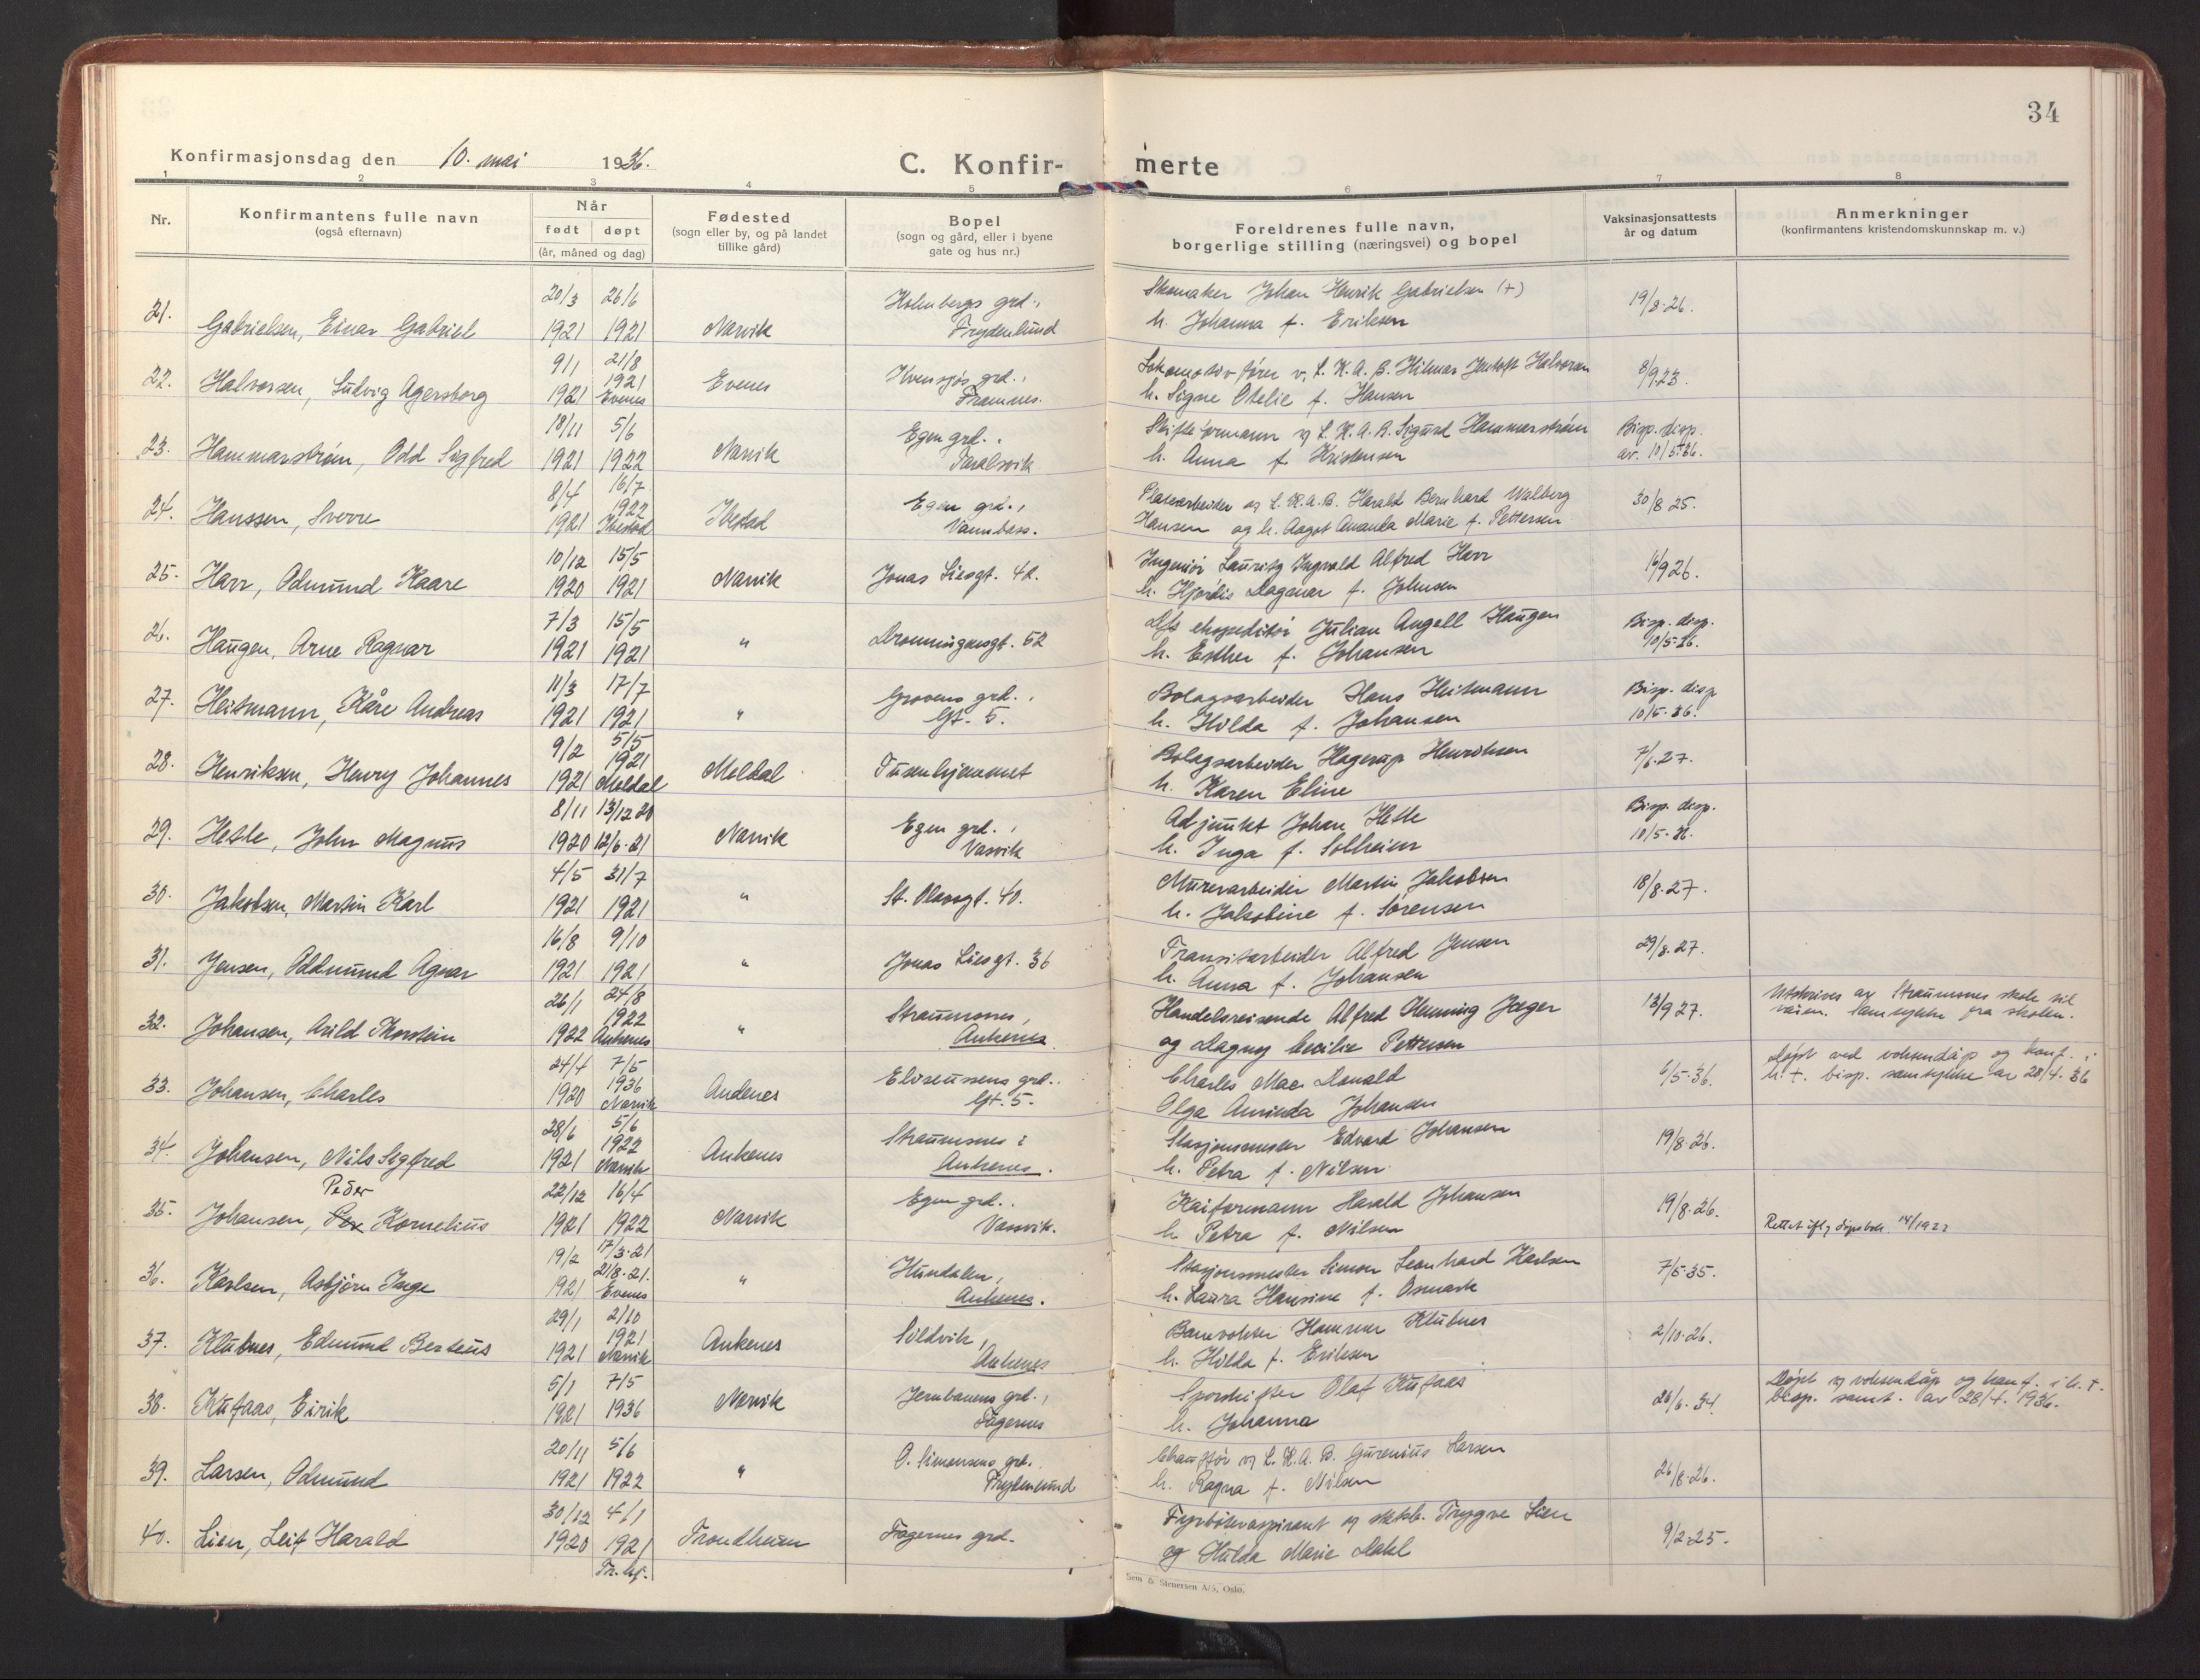 34
Konfirmasjonsdag den 10. mai 1936.
C. Konfir-
merte
1 2 3 4 5 6 7 8
Nr.
Konfirmantens fulle navn
(også efternavn)
Når
født døpt
(år, måned og dag)
Fødested
(sogn eller by, og på landet
tillike gård)
Bopel
(sogn og gård, eller i byene
gate og hus nr.)
Foreldrenes fulle navn,
borgerlige stilling (næringsvei) og bopel
Vaksinasjonsattests
år og datum
Anmerkninger
(konfirmantens kristendomskunnskap m. v.)
20/3 26/6 Holmbergs grd., Skomaker Johan Henrik Gabrielsen (+) 19/8.26.
21. Gabrielsen, Einar Gabriel 1921 1921 Narvik Frydenlund h. Johanna f. Eriksen
9/1 21/8 1921 Kvensjøs grd., Lokomotivfører v. L.K.A.B. Hilmar Halvorsen 8/9.23.
22. Halvorsen, Ludvig Agersborg 1921 Evenes Evenes Framnes. h. Signe Otelie f. Hansen
18/11 5/6 Egen grd., Skifteformann v/ L.K.A.B. Sigurd Hammarstrøm Bisp. disp.
23. Hammarstrøm, Odd Sigfred 1921 1922 Narvik Taralsvik h. Anna f. Kristensen av. 10/5-36.
8/4 16/7 1922 Egen grd., Platearbeider v/ L.K.A.B. Harald Bernhard Walberg 30/8 25.
24. Hanssen, Sverre 1921 Ibestad Ibestad Vannbass. Hansen og h. Aagot Amanda Marie f. Pettersen
10/12 15/5 Ingeniør Lauritz Ingvald Alfred Harr 16/9 26.
25. Harr, Odmund Kaare 1920 1921 Narvik Jonas Liesgt. 42. h. Hjørdis Dagmar f. Johnsen
7/3 15/5 Dfs ekspeditør Julian Angell Haugen Bisp. disp.
26. Haugen, Arne Ragnar 1921 1921 " Dronningensgt. 52 h. Esther f. Johansen 10/5-36.
11/3 17/7 Grovens grd., Bolagsarbeider Hans Heitmann Bisp. disp
27. Heitmann, Kåre Andreas 1921 1921 " Gt. 5. h. Hilda f. Johansen 10/5-36.
9/2 5/5 1921 Bolagsarbeider Hagerup Henriksen 7/6.27.
28. Henriksen, Henry Johannes 1921 Meldal Meldal Tusenhjemmet h. Karen Eline
8/11 13/12 20 Egen grd., Adjunkt Johan Hetle Bisp. disp.
29. Hetle, John Magnus 1920 12/6.21 Narvik Vasvik h. Inga f. Solheim 10/5-36.
4/5 31/7 Murerarbeider Martin Jakobsen 18/8.27.
30. Jakobsen, Martin Karl 1921 1921 " St. Olavsgt. 40. h. Jakobine f. Sørensen
16/8 9/10 Transitarbeider Alfred Jensen 29/8.27.
31. Jensen, Oddmund Agnar 1921 1921 " Jonas Liesgt. 36 h. Anna f. Johansen
26/1 24/8 1922 Straumsnes, Handelsreisende Alfred Henning Jæger 13/9 27. Utskrives av Straumsnes skole til
32. Johansen, Arild Thorstein 1922 Ankenes " Ankenes og Dagny Cecilie Pettersen våren. Samtykke fra skolen.
24/4 7/5 1936 Eliseussens grd. Charles Mac Donald 6/5-36. Døpt ved voksendåp og konf. i
33. Johansen, Charles 1920 Narvik Andenes Gt. 5. Olga Aminda Johansen h.t. bisp. samtykke av 28/4.36
28/6 5/6 1922 Straumsnes i Stasjonsmester Edvard Johansen 19/8.26.
34. Johansen, Nils Sigfred 1921 Narvik Ankenes Ankenes. h. Petra f. Nilsen
Peder 22/12 16/4 Egen grd. Kaiformann Harald Johansen 19/8.26.
35. Johansen, Kornelius 1921 1922 Narvik Vassvik. h. Petra f. Nilsen Rettet iflg døpebok 14/1922
19/2 17/3.21 21/8.21. Hundalen, Stasjonsmester Simon Leonhard Karlsen 7/5-35.
36. Karlsen, Asbjørn Inge 1921 Evenes " Ankenes. h. Laura Hansine f. Osmark
29/1 2/10 1921 Sildvik, Banevokter Hammer Klubnes 2/10.26.
37. Klubnes, Edmund Berteus 1921 Narvik Ankenes Ankenes h. Hilda f. Eriksen
5/1 7/5 Jernbanens grd., Sporskifter Olaf Kufaas 26/6.34. Døpt v/ voksendåp og konf. i h.t.
38. Kufaas, Eirik 1921 1936 Narvik Fagernes h. Johanna bisp. samt. av 28/4.1936.
20/11 5/6 O. Simonsens grd. Chauffør v/ L.K.A.B. Gurenius Larsen 26/8.26.
39. Larsen, Odmund 1921 1922 " Frydenlund h. Ragna f. Nilsen
30/12 4/1 Fyrbøteraspirant v/ Trygve Lien 9/2-25.
40. Lien, Leif Harald 1920 1921 Trondheim Fagernes grd. og Hulda Marie Dahl
Tr. hj.
Sem & Stenersen A/S, Oslo.